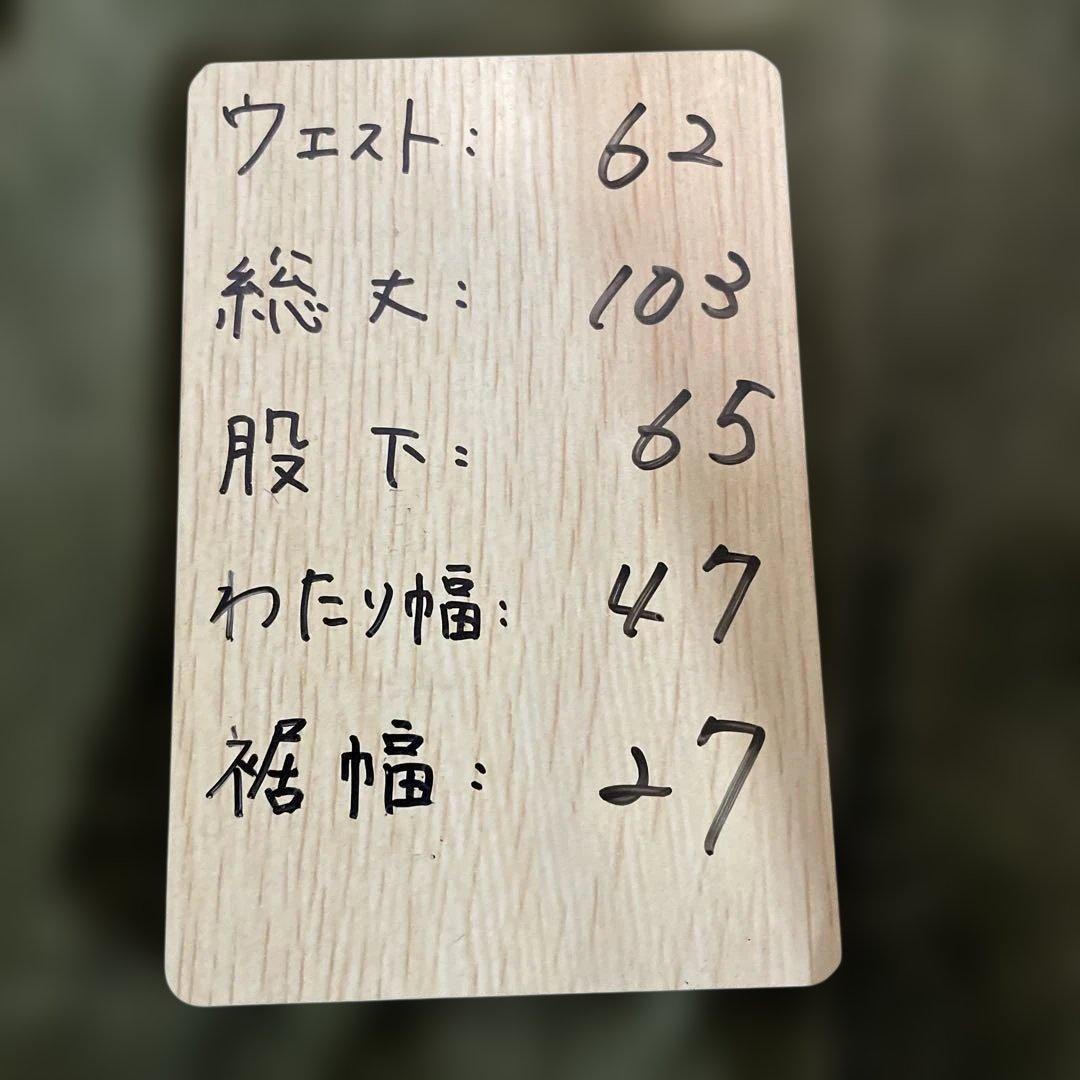 ウエスト: 62
総丈: 103
股下: 65
わたり幅: 47
裾幅: 27